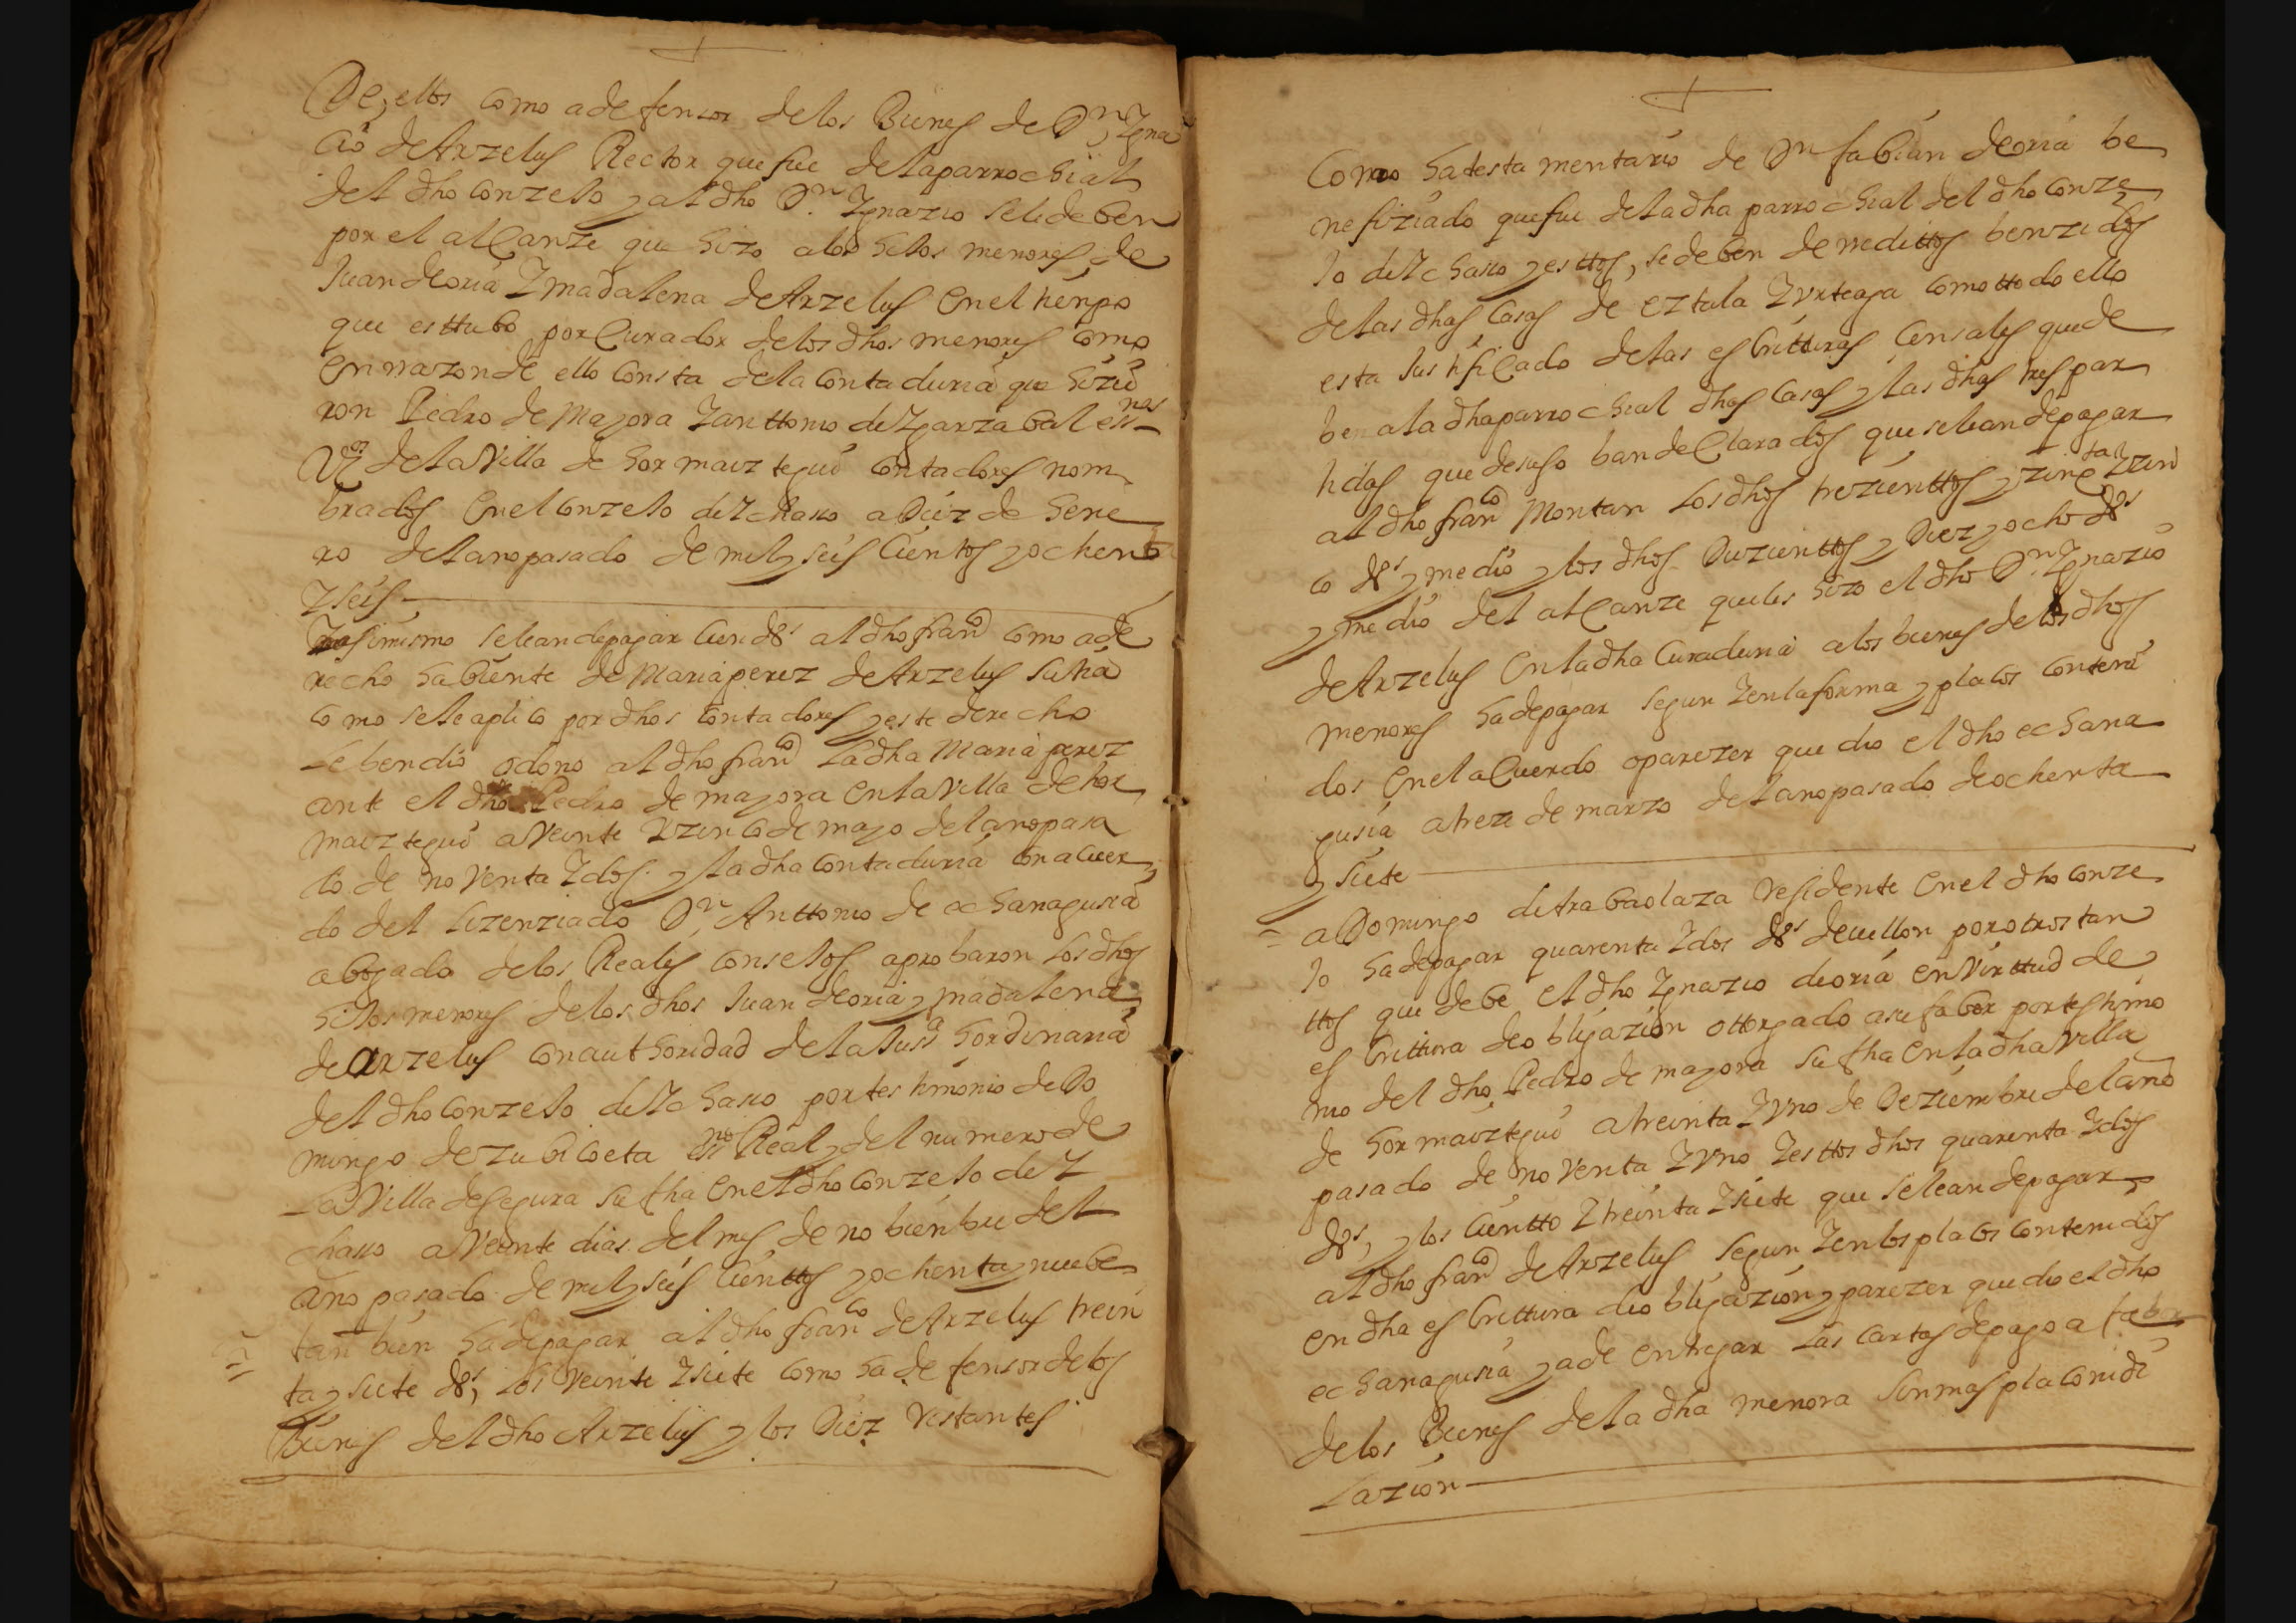 De ellos como a defensor de los Bienes de Dn Igna
cio de Arzelus Rector que fue de la parrochial
del dho conzejo y al dho Dn Ignazio se le deben
por el alcanze que hizo a los hijos menores de
Juan de oria Y madalena de Arzelus en el tienpo
que esttubo por Curador de los dhos menores como
en rrazon de ello consta de la contaduria que hizie
ron Pedro de Mayora Y anttonio de Ygarzabal essnos
Rl de la Villa de hormaiztegui contadores nom
brados en el conzejo de Ychasso a Diez de hene
ro del ano pasado de mil y seis Cientos y ochenta
Y seis
Y asimismo se le an de pagar cien ds al dho franco como a de
recho habiente de Maria perez de Arzelus su tia
como se le aplico por dhos contadores y este derecho
le bendio o dono al dho franco la dha Maria perez
ante el dho Pedro de mayora en la Villa de hor
maiztegui a Veinte Y zinco de mayo del ano pasa
do de noventa Y dos y la dha contaduria con acuer
do del lizenziado Dn Anttonio de echanagusia
abogado de los Reales consejos aprobaron los dhos
hijos menores de los dhos Juan de oria y madalena
de arzelus con authoridad de la Jussa hordinaria
del dho conzejo de Ychasso por testimonio de Do
mingo de zubicoeta essno Real y del numero de
la Villa de Segura su fha en el dho conzejo de Y
chasso a Veinte dias del mes de nobienbre del
ano pasado de mil y seis Cienttos y ochenta y nuebe
tanbien ha de pagar al dho franco de Arzelus trein
ta y siete ds, los Veinte Y siete como ha defensor de los
Bienes del dho Arzelus y los Diez restantes
Como ha testamentario de Dn fabian de oria be
nefiziado que fue de la dha parrochial del dho conze
jo de Ychasso y esttos, se deben de redittos benzidos
de las dhas Casas de eztala Y Vrteaga como ttodo ello
esta Justificado de las escritturas Censales que de
ben a la dha parrochial dhas casas y las dhas tres par
tidas que de suso ban declarados que se le an de pagar
al dho franco Montan los dhos trezienttos y zinqta Y zin
co ds y medio y los dhos Duzienttos y Diez y ocho ds
y medio del alcanze que les hizo el dho Dn Ignazio
de Arzelus en la dha Curaduria a los bienes de los dhos
menores ha de pagar segun Y en la forma y plazos conteni
dos en el acuerdo o parezer que dio el dho echana
gusia a treze de marzo del ano pasado de ochenta
y siete
a Domingo de trabaolaza residente en el dho conze
jo ha de pagar quarenta Y dos ds de vellon por otros tan
ttos que debe el dho Ignazio de oria en Virttud de
escrittura de obligazion ottorgado a su fabor por testimo
nio del dho Pedro de mayora su fha en la dha Villa
de hormaiztegui a treinta Y Vno de Deziembre del ano
pasado de noventa Y Vno Y esttos dhos quarenta Y dos
ds, y los Cientto Y treinta Y siete que se le an de pagar
al dho franco de Arzelus segun Y en los plazos contenidos
en dha escrittura de obligazion y parezer que dio el dho
echanagusia y a de entregar las cartas de pago a fabor
de los Bienes de la dha menora sin mas plazo ni di
lazion